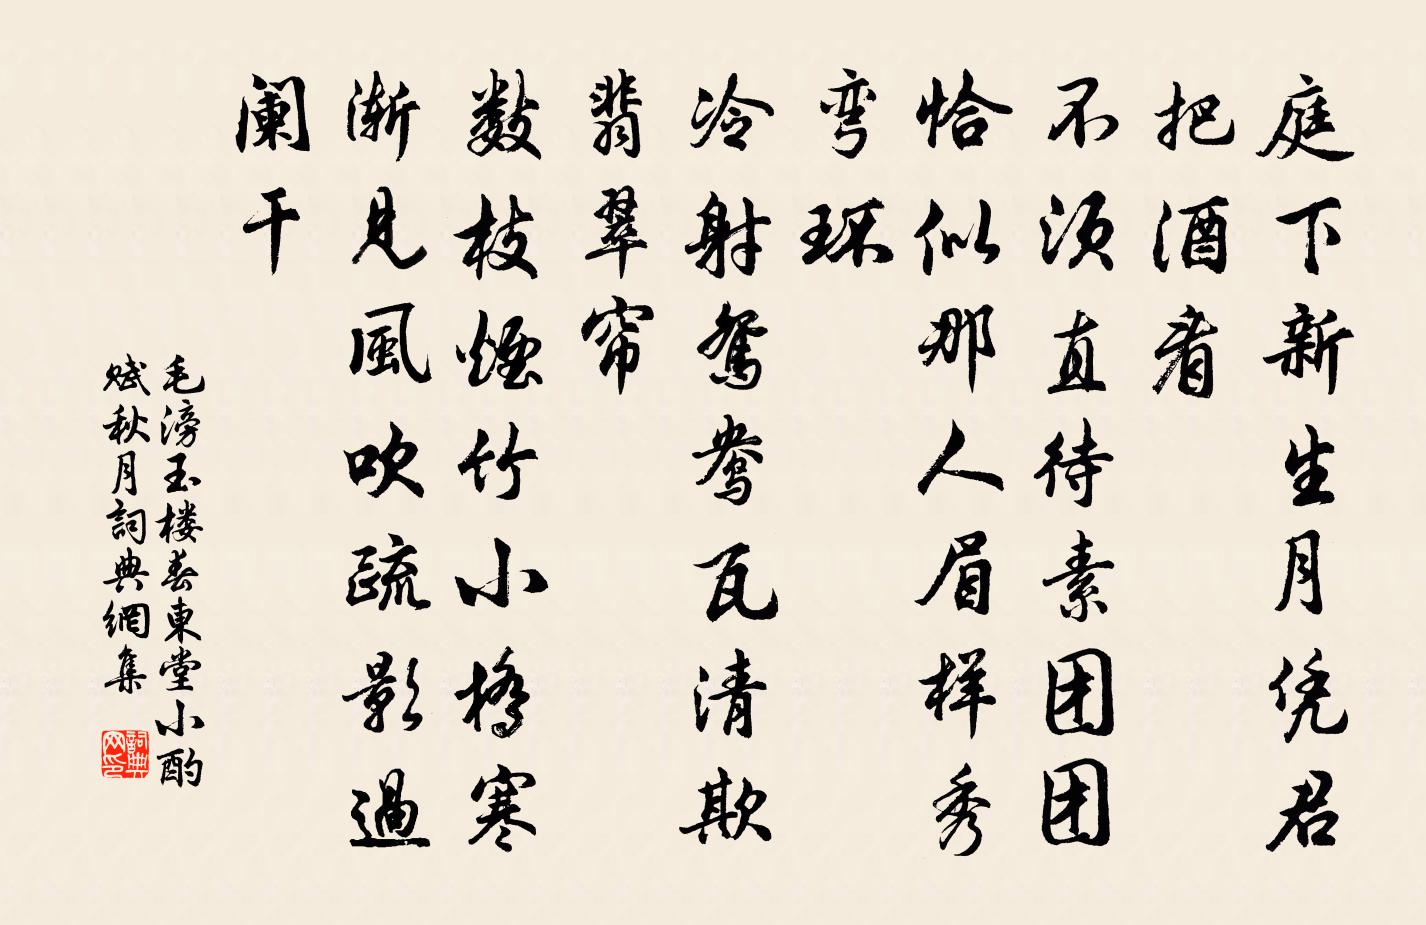 庭下新生月凭君
把酒看
不须直待素团团
恰似那人眉样秀
弯环
冷射鸳鸯瓦清欺
翡翠帘
数枝烟竹小橋寒
渐见風吹疏影過
阑干
毛滂玉楼春東堂小酌
赋秋月詞典網集
詞典
网印